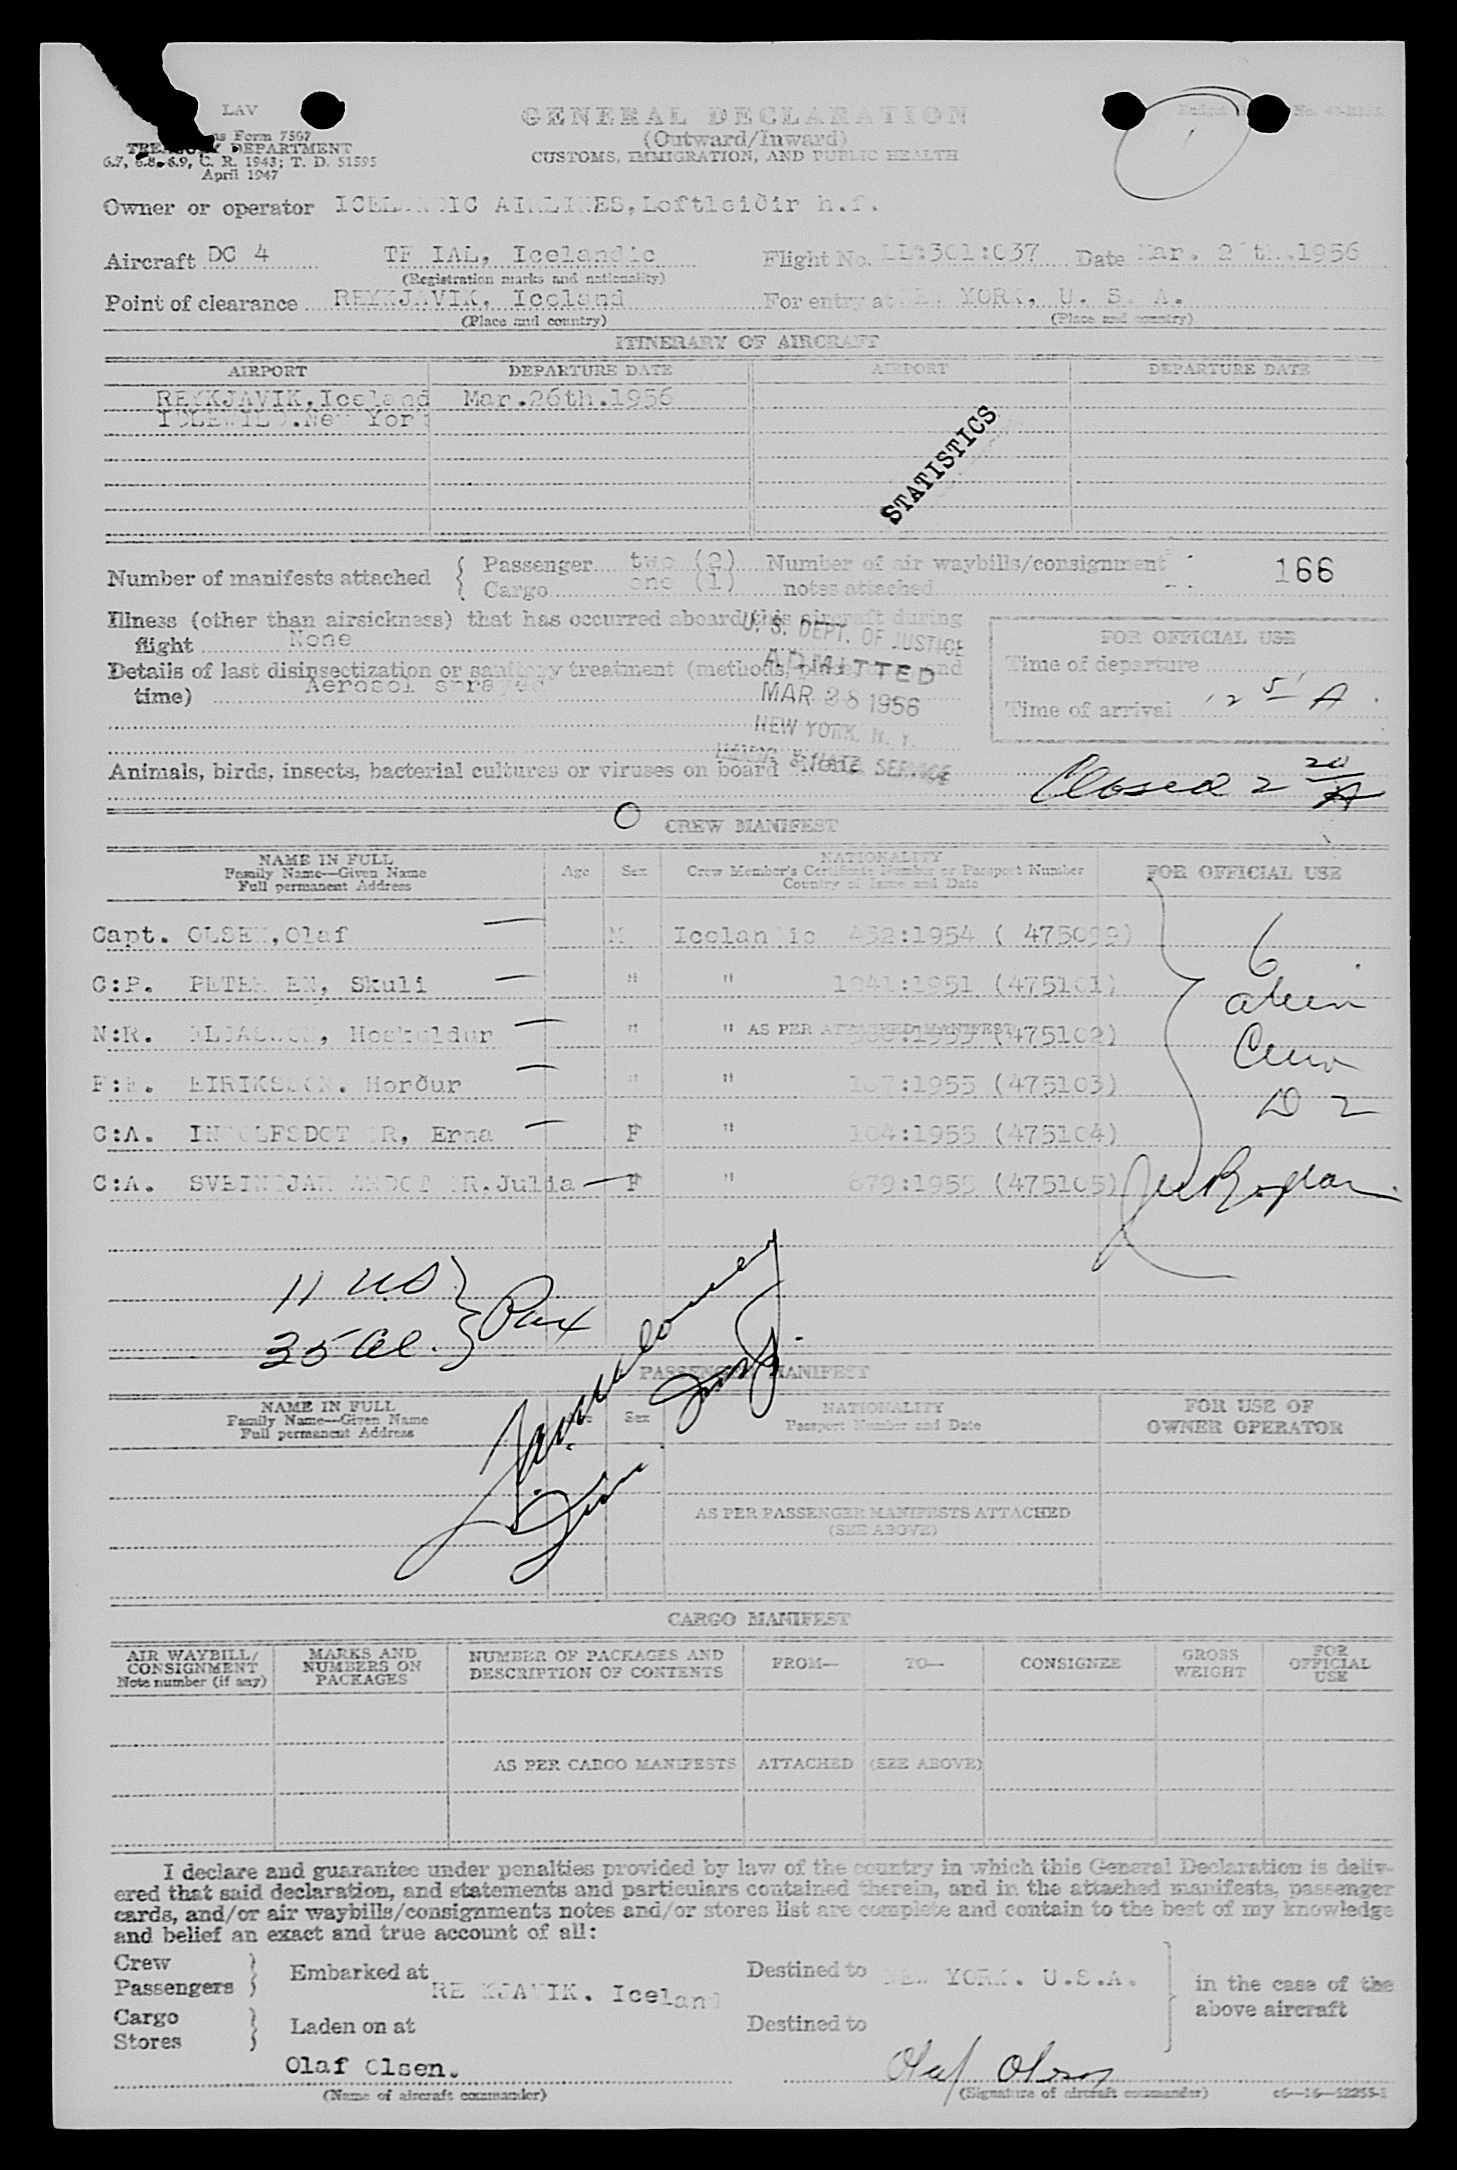 LAV
GENERAL DECLARATION
Form 7507
TREASURY DEPARTMENT
(Outward/Inward)
6.7, 6.8, 6.9, C. R. 1943; T. D. 51595
CUSTOMS, IMMIGRATION, AND PUBLIC HEALTH
April 1947
Owner or operator ICELANDIC AIRLINES, Loftleiðir h.f.
Aircraft DC 4 TF IAL, Icelandic Flight No. LL:301:037 Date Mar. th.1956
(Registration marks and nationality)
Point of clearance REYKJAVIK, Iceland For entry at NEW YORK, U. S. A.
(Place and country) (Place and country)
ITINERARY OF AIRCRAFT
AIRPORT DEPARTURE DATE AIRPORT DEPARTURE DATE
REYKJAVIK.Iceland Mar.26th.1956
IDLEWILD.New York
STATISTICS
Number of manifests attached { Passenger two (2) Number of air waybills/consignment 166
Cargo one (1) notes attached
Illness (other than airsickness) that has occurred aboard this aircraft during
flight None
U. S. DEPT. OF JUSTICE
FOR OFFICIAL USE
Details of last disinsectization or sanitary treatment (method, place, date and
time) Aerosol sprayed
ADMITTED
MAR 28 1956
NEW YORK, N. Y.
IMMIG. & NATZ. SERVICE
Time of departure
Time of arrival 12 51 A
Animals, birds, insects, bacterial cultures or viruses on board None
Closed 2 20 A
CREW MANIFEST
NAME IN FULL Age Sex NATIONALITY FOR OFFICIAL USE
Family Name—Given Name Crew Member's Certificate Number or Passport Number
Full permanent Address Country of Issue and Date
Capt. OLSEN,Olaf M Icelandic 452:1954 ( 475099)
C:P. PETERSEN, Skuli " " 1041:1951 (475101)
N:R. ELIASSON, Hoskuldur " " :1955 (475102)
AS PER ATTACHED MANIFEST
F:E. EIRIKSSON. Horður " " 107:1955 (475103)
C:A. INGOLFSDOTTIR, Erna F " 104:1955 (475104)
C:A. SVEINBJARNARDOTTIR.Julia F " 679:1955 (475105)
6
alien
Crew
D 2
11 U.S }
35 al. } Pax
PASSENGER MANIFEST
NAME IN FULL Age Sex NATIONALITY FOR USE OF
Family Name—Given Name Passport Number and Date OWNER OPERATOR
Full permanent Address
AS PER PASSENGER MANIFESTS ATTACHED
(SEE ABOVE)
CARGO MANIFEST
AIR WAYBILL/ MARKS AND NUMBER OF PACKAGES AND FROM— TO— CONSIGNEE GROSS FOR
CONSIGNMENT NUMBERS ON DESCRIPTION OF CONTENTS WEIGHT OFFICIAL
Note number (if any) PACKAGES USE
AS PER CARGO MANIFESTS ATTACHED (SEE ABOVE)
I declare and guarantee under penalties provided by law of the country in which this General Declaration is deliv-
ered that said declaration, and statements and particulars contained therein, and in the attached manifests, passenger
cards, and/or air waybills/consignments notes and/or stores list are complete and contain to the best of my knowledge
and belief an exact and true account of all:
Crew
Passengers } Embarked at REYKJAVIK. Iceland Destined to NEW YORK. U.S.A. } in the case of the
above aircraft
Cargo
Stores } Laden on at Destined to
Olaf Olsen. Olaf Olsen
(Name of aircraft commander) (Signature of aircraft commander) c6—16—52255-1